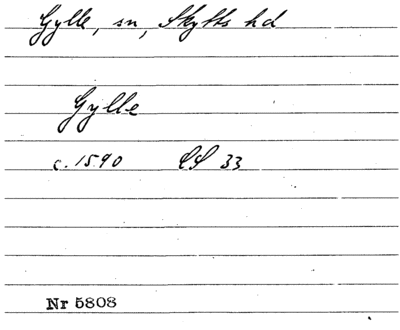 Gylle, sn, Skytts hd
Gylle
c. 1590 LL 33
Nr 5808